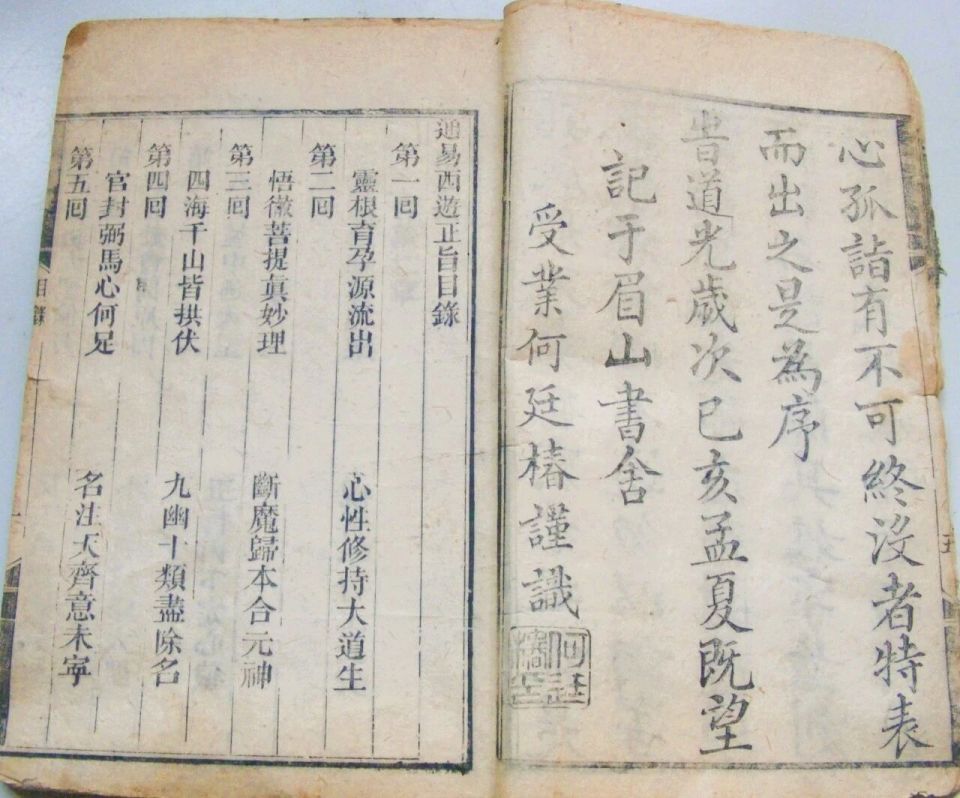 心孤詣有不可終沒者特表
而出之是為序
旹道光歲次已亥孟夏既望
記于眉山書舍
受業何廷椿謹識
通易西遊正旨目錄
第一囘
靈根育孕源流出 心性修持大道生
第二囘
悟徹菩提眞妙理 斷魔歸本合元神
第三囘
四海千山皆拱伏 九幽十類盡除名
第四囘
官封弼馬心何足 名注天齊意未寧
第五囘
目錄